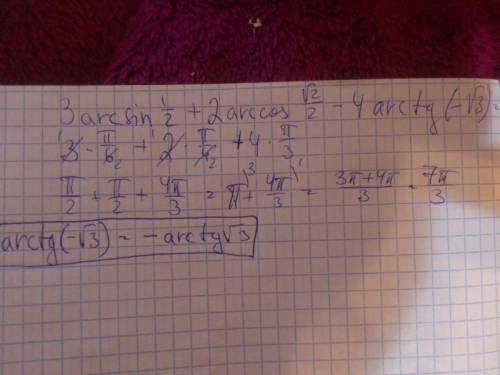 3 arcsin 1/2 + 2 arccos √2/2 - 4 arctg (-√3) =
3 · π/6 + 2 · π/4 + 4 · π/3
π/2 + π/2 + 4π/3 = π + 4π/3 = 3π+4π/3 = 7π/3
arctg(-√3) = -arctg√3